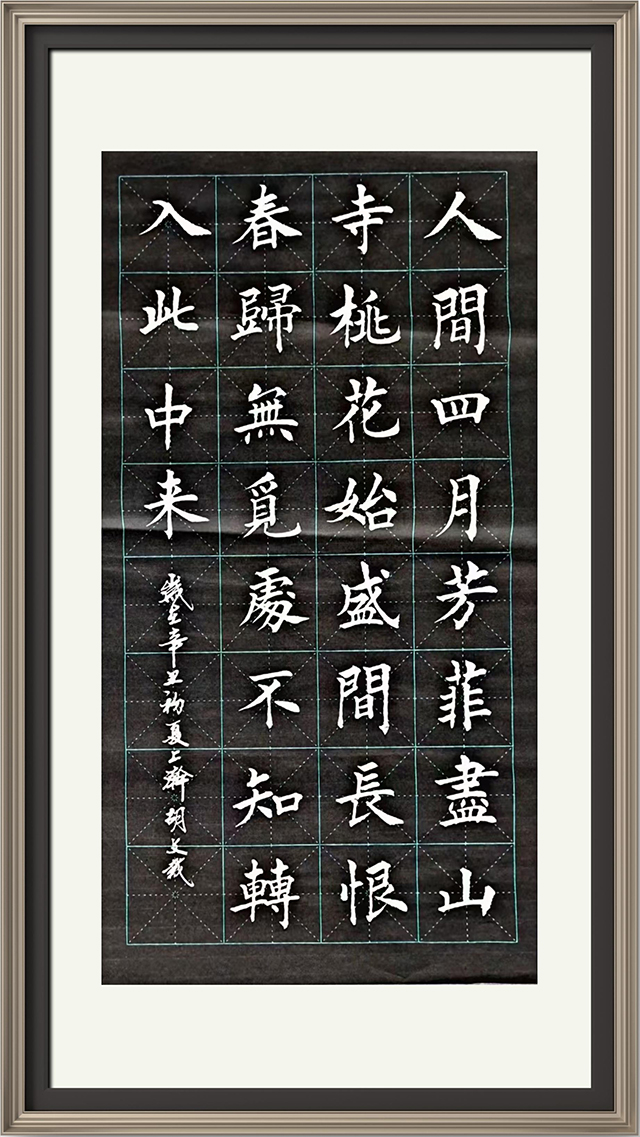 人間四月芳菲盡山
寺桃花始盛間長恨
春歸無覓處不知轉
入此中来
歲在辛丑初夏上澣胡文